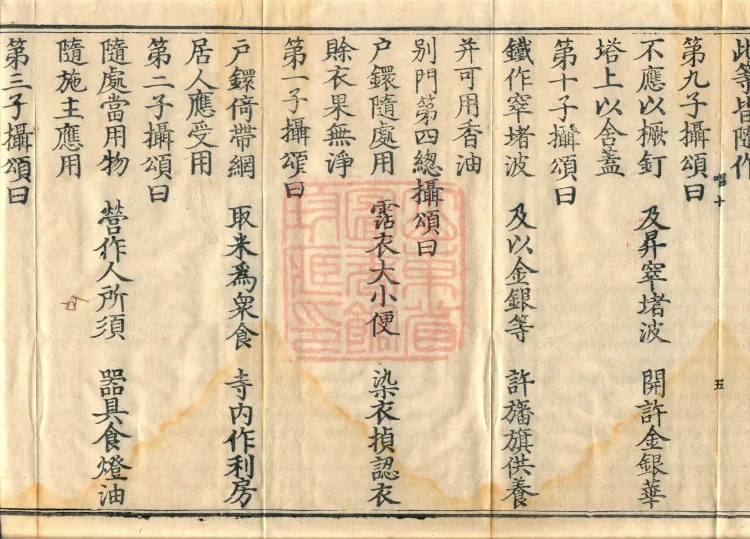 此等皆隨作
唱十
五
第九子攝頌曰
不應以橛釘 及昇窣堵波 開許金銀華
塔上以舍蓋
第十子攝頌曰
鐵作窣堵波 及以金銀等 許旛旗供養
并可用香油
別門第四總攝頌曰
戶鐶隨處用 衣大小便 染衣揁認衣
賖衣果無淨
第一子攝頌曰
戶鐶倚帶網 取米爲衆食 寺內作利房
居人應受用
第二子攝頌曰
隨處當用物 營作人所須 器具食燈油
隨施主應用
第三子攝頌曰